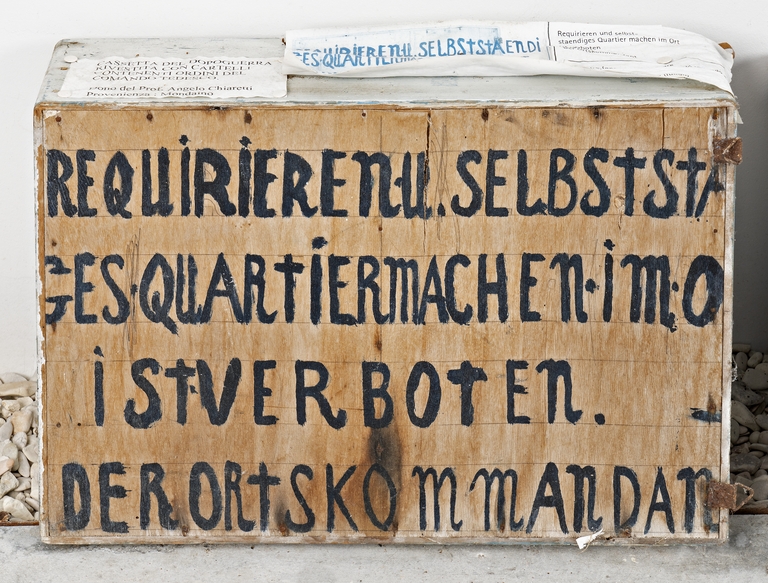 CASSETTA DEL DOPOGUERRA
RIVESTITA CON CARTELLI
CONTENENTI ORDINI DEL
COMANDO TEDESCO
Dono del Prof. Angelo Chiaretti
Provenienza : Mondaino
REQUIRIEREN·U. SELBSTSTAENDI
GES·QUARTIER
Requirieren und selbst-
staendiges Quartier machen im Ort
REQUIRIEREN·U.SELBSTSTA
GES·QUARTIERMACHEN·IM·O
ISTVERBOTEN.
DER ORTSKOMMANDAN